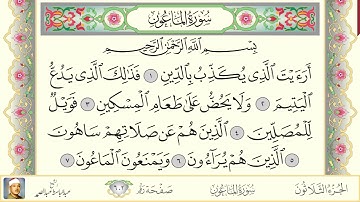 سُورَةُ الْمَاعُونِ
بِسْمِ اللَّهِ الرَّحْمَٰنِ الرَّحِيمِ
أَرَءَيْتَ الَّذِي يُكَذِّبُ بِالدِّينِ ١ فَذَٰلِكَ الَّذِي يَدُعُّ
الْيَتِيمَ ٢ وَلَا يَحُضُّ عَلَىٰ طَعَامِ الْمِسْكِينِ ٣ فَوَيْلٌ
لِّلْمُصَلِّينَ ٤ الَّذِينَ هُمْ عَن صَلَاتِهِمْ سَاهُونَ
٥ الَّذِينَ هُمْ يُرَاءُونَ ٦ وَيَمْنَعُونَ الْمَاعُونَ ٧
الجزء الثلاثون سورة الماعون صفحة رقم ٦٠٢